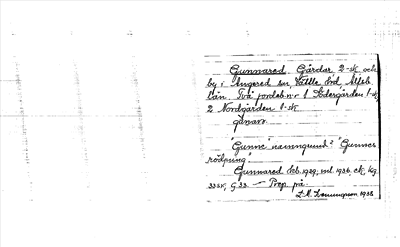 Gunnared. Gårdar 2-sk och
by i Angered sn, Vättle hrd, Älfsb.
län. Två jordeb.n:r 1 Södergården 1-sk,
2 Nordgården 1-sk.
gånarö.
"Gunne" namngrund? "Gunnes
rödjning"
Gunnared deb. 1929; ml 1936, ek. kg.
33 SV, G 33. — Prop på
1938